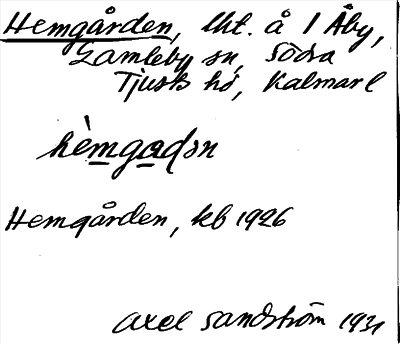 Hemgården, lht. å 1 Åby,
Gamleby sn, Södra
Tjusts hd, Kalmar l
hèmgaḍən
Hemgården, kb 1926
Axel Sandström 1931